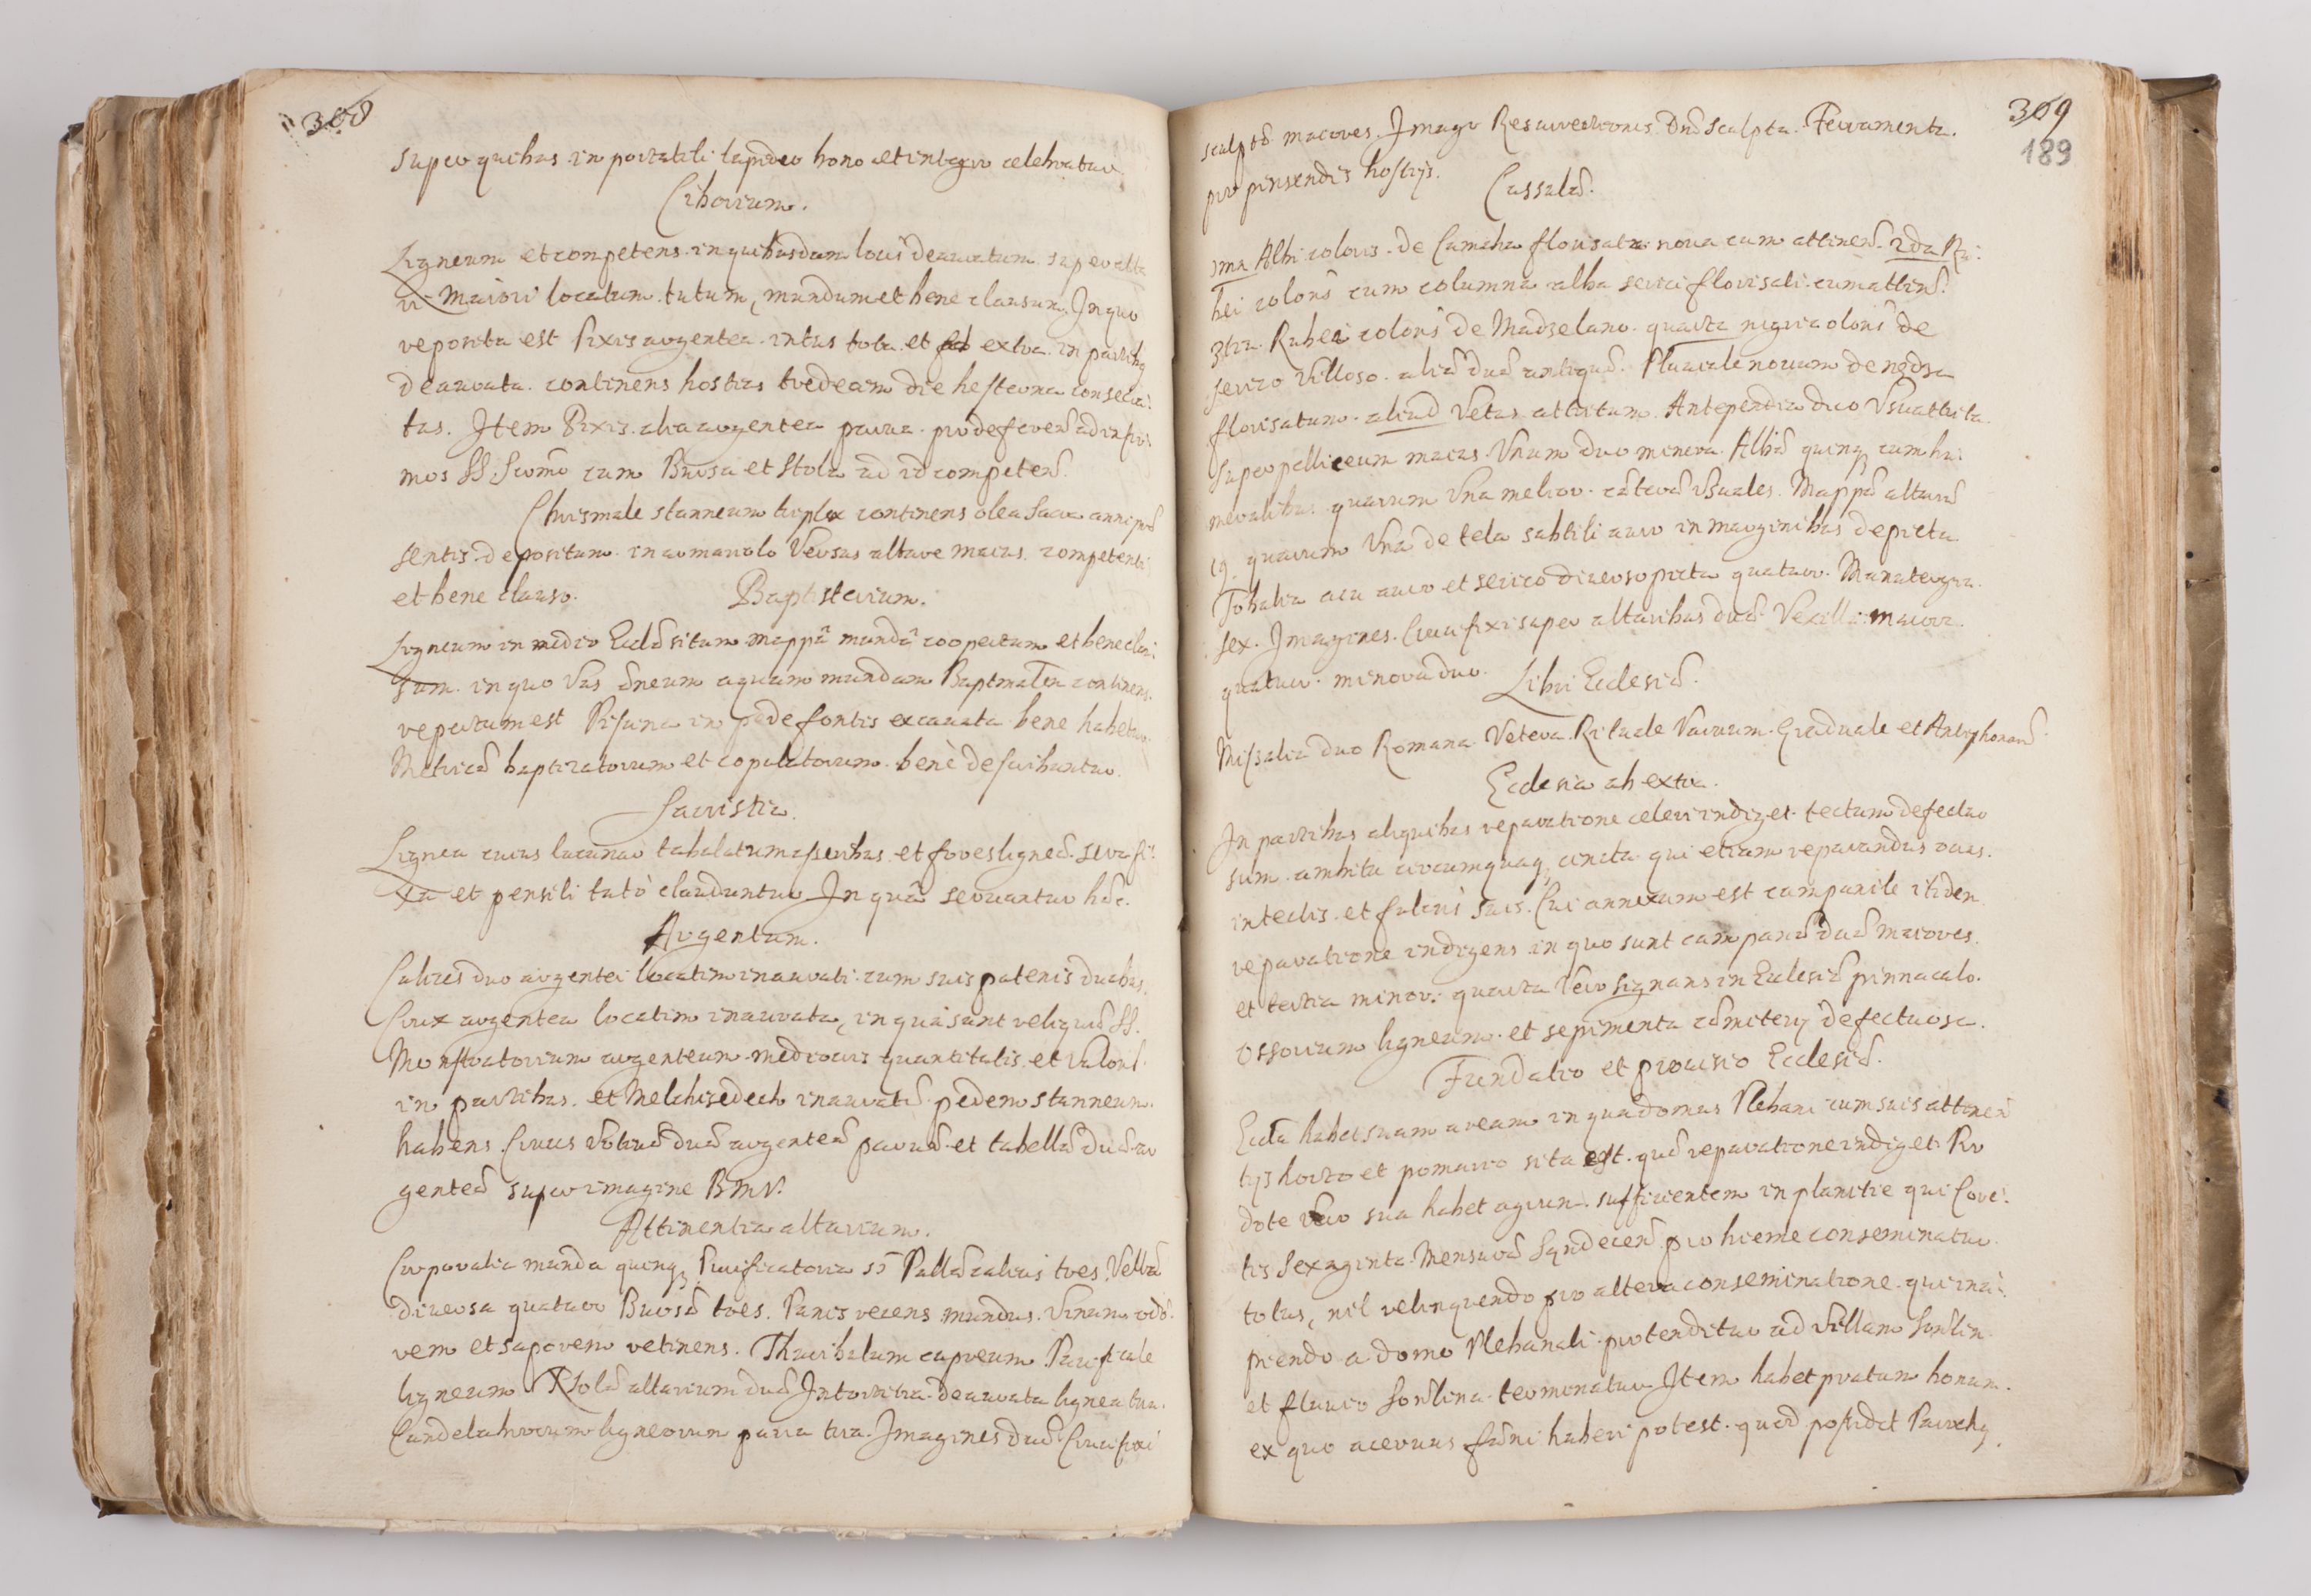 308
super quibus in portatili lapideo bono et integro celebratur.
Ciborium.
Ligneum et competens in quibusdam locis deauratum super alta
ri Maiori locatum tutum, mundum et bene clausum. In quo
reposita est Pixis argentea intus tota et extra in partibus
deaurata continens hostias tredecim die hesterna consecra:
tas. Item Pixis alia argentea parva pro deferen̄ ad infir:
mos SS. Scrom̄o cum Bursa et Stola ad id competen̄.
Chrismale stanneum triplex continens olea sacra anni præ
sentis depositum in armariolo versus altare maius competenti
et bene clauso. Baptisterium.
Ligneum in medio Ecclæ situm mappâ mundâ coopertum et bene clau:
sum. in quo vas æneum aquam mundam Baptmalem continens
repertum est Piscina in pede fontis excavata bene habetur.
Metricæ baptizatorum et copulatorum benè describuntur.
Sacristia.
Lignea cuius lacunar tabulatum asseribus et fores ligneæ sera fi:
xa et pensili tutò clauduntur. In quâ servantur hæc.
Argentum.
Calices duo argentei locatim inaurati cum suis patenis duabus.
Crux argentea locatim inaurata, in quâ sunt reliquiæ SS.
Monstratorium argenteum mediocris quantitatis et valoris
in partibus et Melchisedech inauratæ pedem stanneum
habens. Cruces votivæ duæ argenteæ parvæ et tabellæ duæ ar
genteæ super imagine BMV.
Attinentia altarium.
Corporalia munda quinq; Purificatoria 15 Pallæ calicis tres, Vella
diversa quatuor Bursæ tres. Panis recens mundus. Vinum odo:
rem et saporem retinens. Thuribulum cupreum Pacificale
ligneum Tholæ altarium duæ Intortitia deaurata lignea tria.
Candelabrorum ligneorum paria tria. Imagines duæ Crucifixi
309
189
sculptæ maiores. Imago Resurrectionis Dnī sculpta. Ferramenta
pro pinsendis hostijs. Cassulæ.
1ma Albi coloris de Camcha florisata nova cum attinen̄. 2da Ru:
bei coloris cum columna alba serici florisati cum attin̄.
3tia Rubei coloris de Madzelano. quarta nigri coloris de
serico villoso. aliæ duæ antiquæ. Pluviale novum de
florisatum. aliud vetus attritum. Antependia duo usu attrita.
Superpelliceum maius unum duo minora. Albæ quinq; cum hu:
meralibus quarum una melior cæteræ usuales. Mappæ altaris
quarum una de tela subtili auro in marginibus depicta
Tobalia acu auro et serico diverso picta quatuor. Manutergia
sex. Imagines Crucifixi super altaribus duæ. Vexilla maiora
quatuor. minora duo. Libri Ecclesiæ.
Missalia duo Romana Vetera. Rituale Varium. Graduale et Antiphonariū
Ecclesia ab extra.
In partibus aliquibus reparatione celeri indiget. tectum defectuo
sum. ambitu circumquaq; cincta qui etiam reparandus
in tectis et fulcris suis. Cui annexum est campanile itidem
reparatione indigens in quo sunt campanæ duæ maiores.
et tertia minor. quarta vero signans in Ecclesiæ pinnaculo.
Ossorium ligneum et sepimenta cæmiterij defectuosa.
Fundatio et provisio Ecclesiæ.
Eccla habet suam aream in qua domus Plebani cum suis attinen̄
tijs horto et pomario sita est quæ reparatione indiget. Pro
dote vero sua habet agrum sufficientem in planitie qui Core:
tis sexaginta Mensuræ pro hieme conseminatur
totus, nil relinquendo pro altera conseminatione qui inci:
piendo a domo Plebanali protenditur ad Villam
et fluvio terminatur. Item habet pratum bonum
ex quo acervus fæni haberi potest. quod possidet Parochus